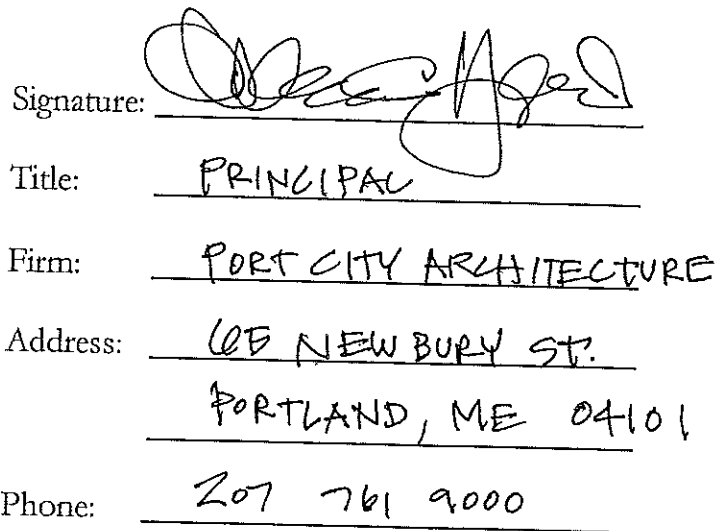 Signature:
Title: PRINCIPAL
Firm: PORT CITY ARCHITECTURE
Address: 65 NEWBURY ST.
PORTLAND, ME 04101
Phone: 207 761 9000